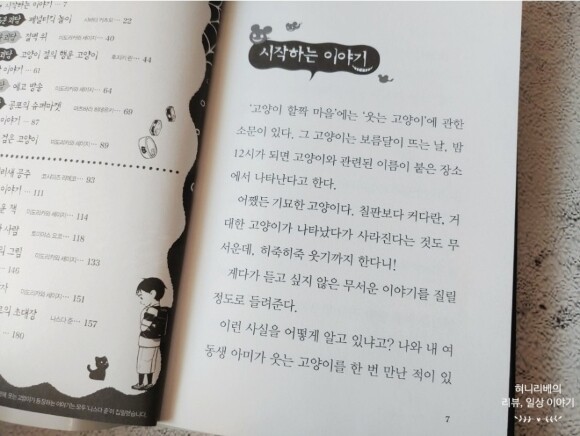 시작하는 이야기 … 7
페널티킥 놀이 … 22
집벽 위 … 40
고양이 걸의 햄윤 고양이 … 44
이야기 … 61
예고 방송 … 64
공포의 슈퍼마켓 … 69
이야기 … 87
검은 고양이 … 89
… 93
이야기 … 111
책 … 114
사람 … 118
그림 … 133
… 146
… 151
초대장 … 157
… 180
시작하는 이야기
‘고양이 할짝 마을’에는 ‘웃는 고양이’에 관한
소문이 있다. 그 고양이는 보름달이 뜨는 날, 밤
12시가 되면 고양이와 관련된 이름이 붙은 장소
에서 나타난다고 한다.
어쨌든 기묘한 고양이다. 칠판보다 커다란, 거
대한 고양이가 나타났다가 사라진다는 것도 무
서운데, 히죽히죽 웃기까지 한다니!
게다가 듣고 싶지 않은 무서운 이야기를 질릴
정도로 들려준다.
이런 사실을 어떻게 알고 있냐고? 나와 내 여
동생 아미가 웃는 고양이를 한 번 만난 적이 있
7
허니리베의
리뷰, 일상 이야기